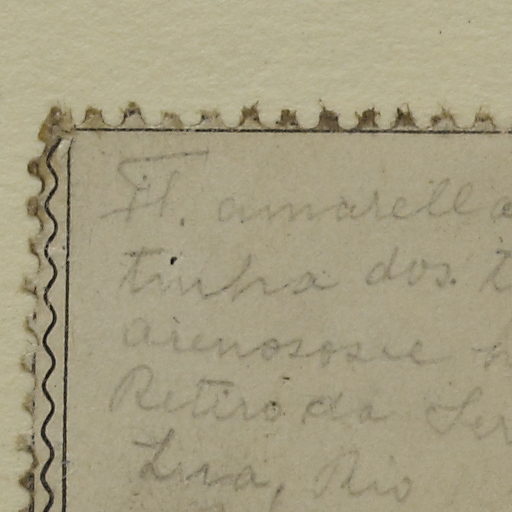 Fl. amarella
tinha dos
arenosos e
Retiro da Ser
Lura, Rio